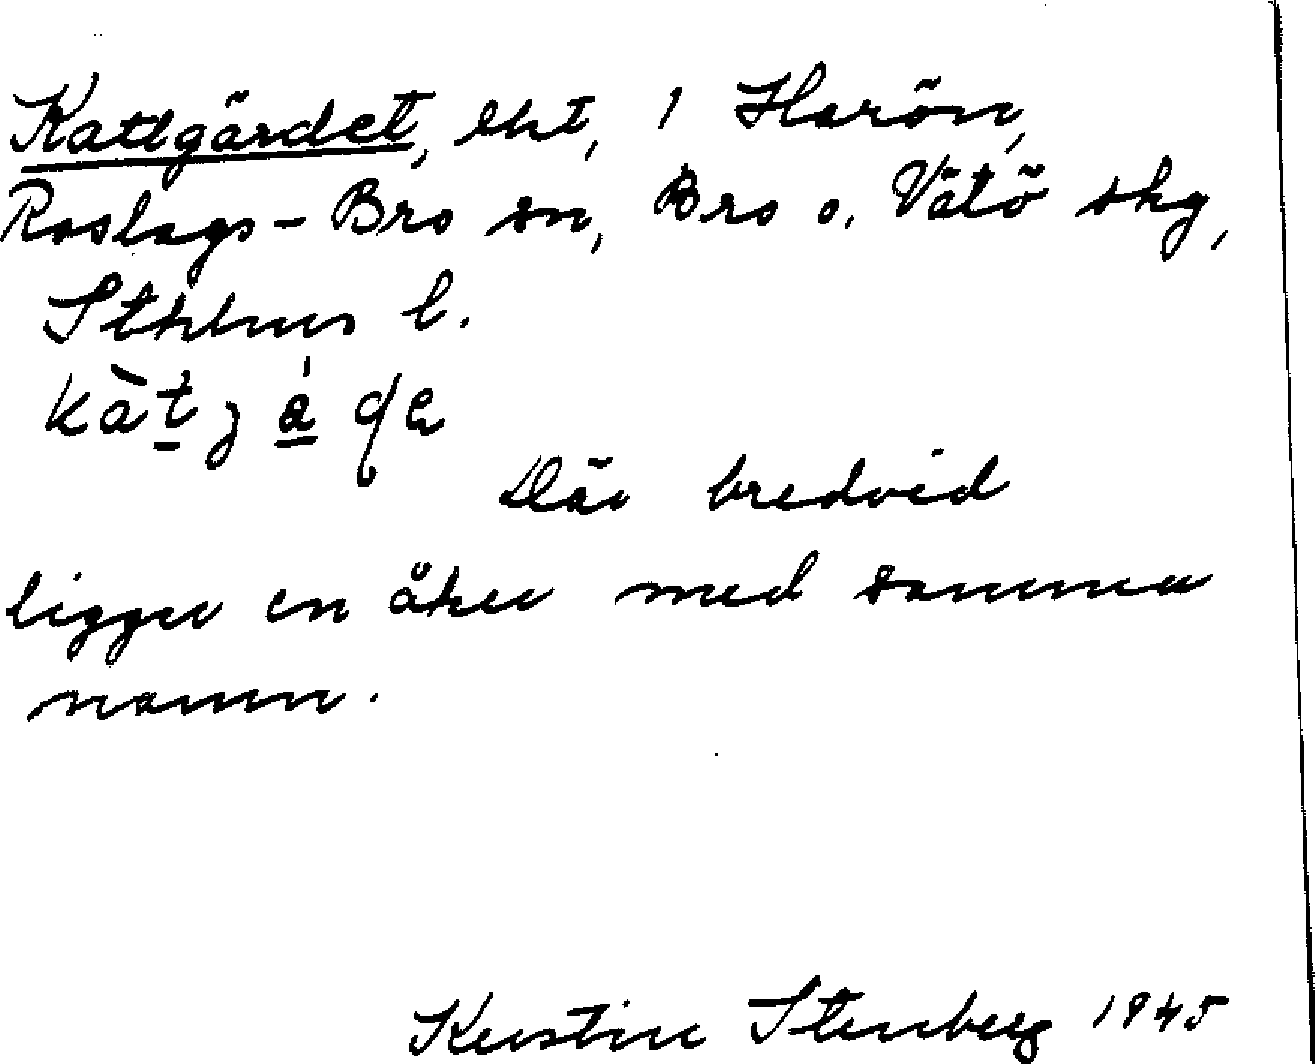 Kattgärdet, lht, 1 Harön,
Roslags-Bro sn, Bro o. Vätö skg,
Sthlms l.
Där bredvid
ligger en åker med samma
namn.
Kerstin Stenberg 1945